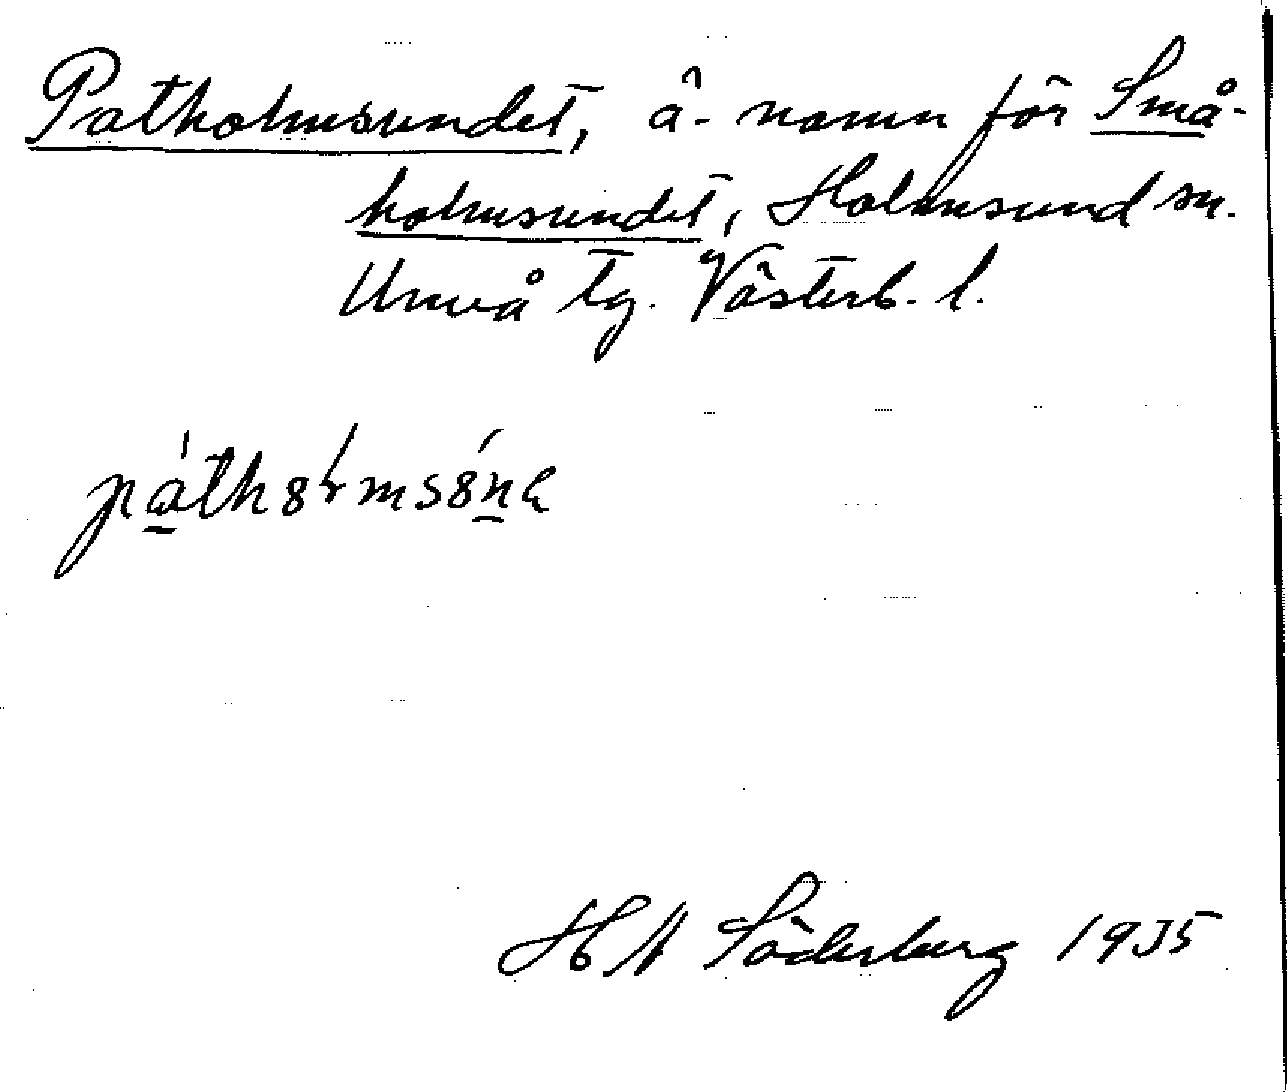 Patholmsundet, ä-namn för Små-
holmsundet, Holmsund sn.
Umeå tg. Västerb. l.
H A Söderberg 1935